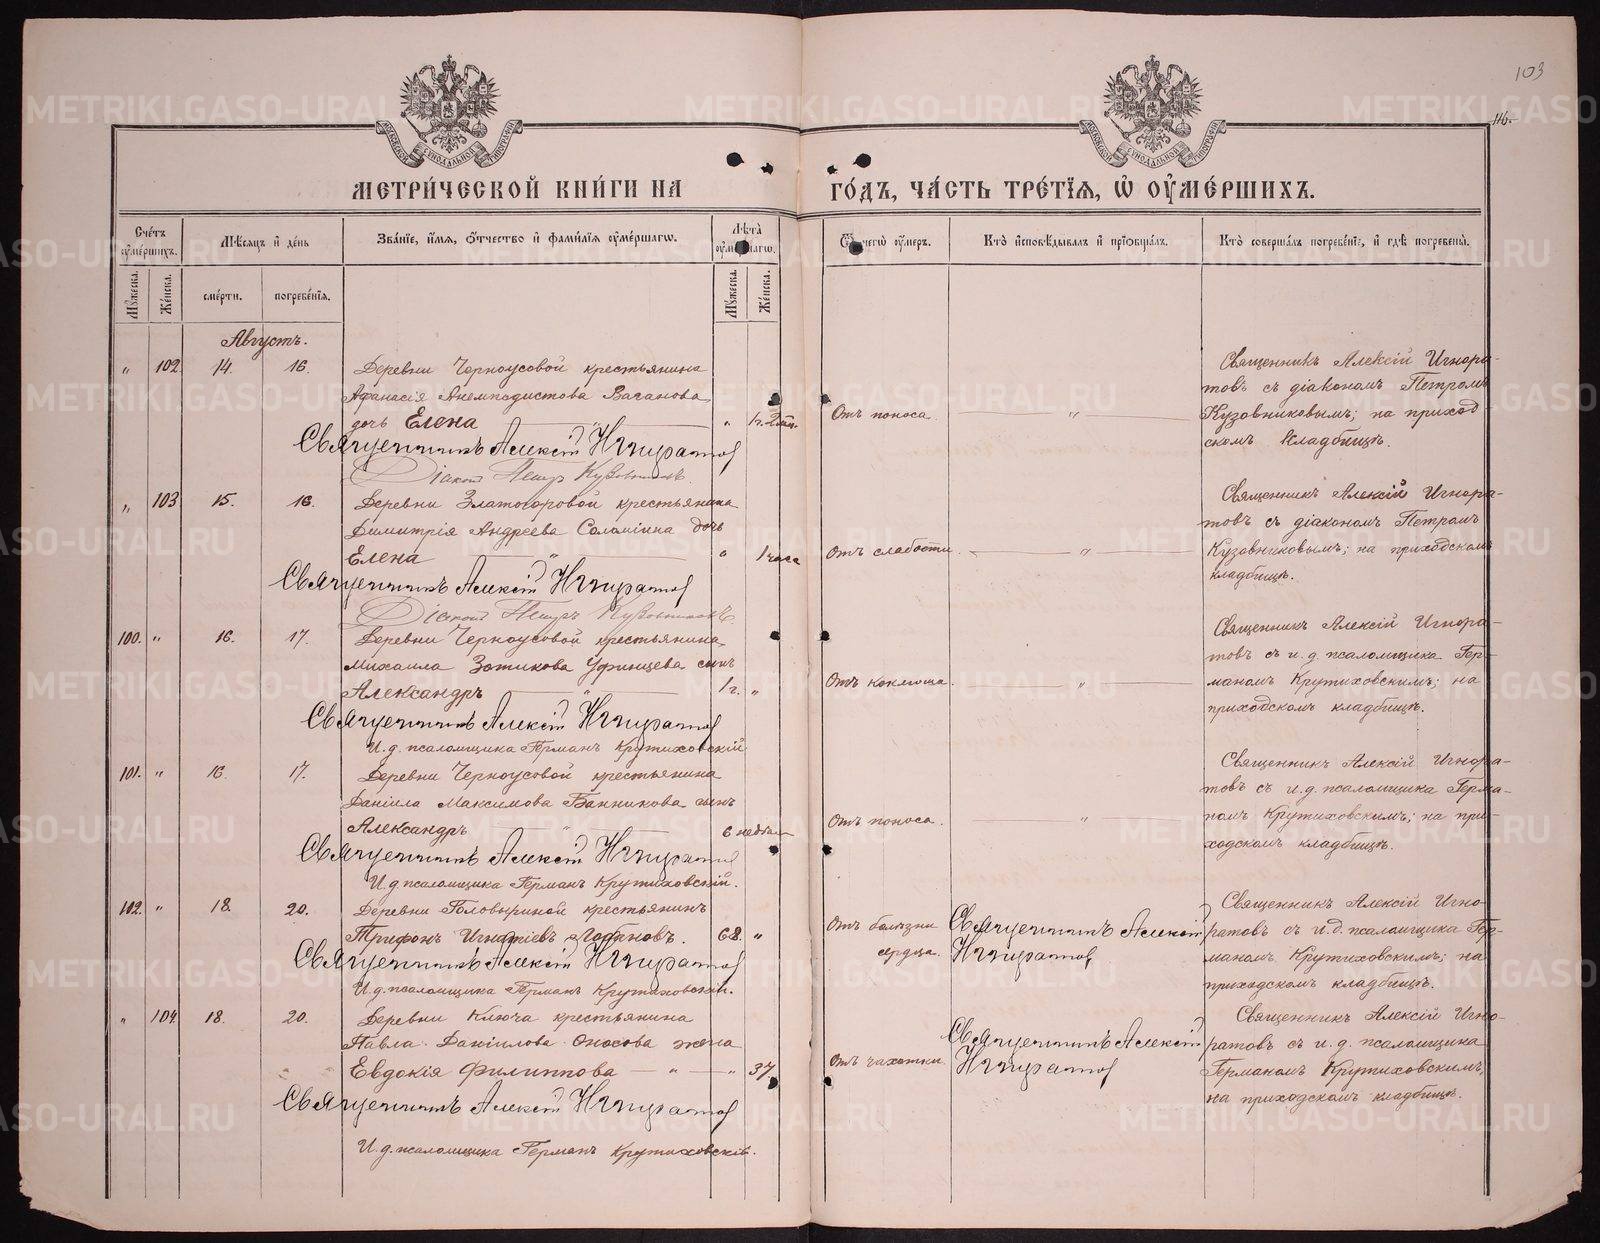 103
116.
МОСКОВСКОЙ СѴНОДАЛЬНОЙ ТИПОГРАФІИ
МОСКОВСКОЙ СѴНОДАЛЬНОЙ ТИПОГРАФІИ
МЕТРИ́ЧЕСКОЙ КНИ́ГИ НА
ГО́ДЪ, ЧА́СТЬ ТРЕ́ТІЯ, Ѡ҆ ОУ҆МЕ́РШИХЪ.
Сче́тъ оу҆ме́ршихъ.
Мѣ́сяцъ и҆ де́нь
Зва́ніе, и҆́мя, ѻ҆́тчество и҆ фами́лія оу҆ме́ршагѡ.
Лѣ́та оу҆ме́ршагѡ.
Ѿ чегѡ̀ оу҆́меръ.
Кто̀ и҆сповѣ́дывалъ и҆ пріѡбща́лъ.
Кто̀ соверша́лъ погребе́ніе, и҆ гдѣ̀ погребены̀.
Мꙋ́жеска. Же́нска. сме́рти. погребе́нія. Мꙋ́жеска. Же́нска.
Августъ.
" 102 14. 16. Деревни Черноусовой крестьянина
Афанасія Анемподистова Ваганова
дочь Елена " " 1 г. 2 м.
Священникъ Алексій Игноратов
Діакон Петръ Кузовников
Отъ поноса "
Священникъ Алексій Игнора-
товъ съ діакономъ Петромъ
Кузовниковымъ; на приход-
скомъ кладбищѣ.
" 103 15. 16. Деревни Златогоровой крестьянина
Димитрія Андреева Соломіина дочь
Елена " " 1 часа
Священникъ Алексій Игноратов
Діакон Петръ Кузовниковъ
Отъ слабости. "
Священникъ Алексій Игнора-
товъ съ діакономъ Петромъ
Кузовниковымъ; на приходскомъ
кладбищѣ.
100. " 16. 17. Деревни Черноусовой крестьянина
Михаила Зотикова Уфинцева сынъ
Александръ " 1 г. "
Священникъ Алексій Игноратов
И. д. псаломщика Германъ Крутиховскій
Отъ коклюша. "
Священникъ Алексій Игнора-
товъ съ и. д. псаломщика Гер-
маномъ Крутиховскимъ; на
приходскомъ кладбищѣ.
101. " 16. 17. Деревни Черноусовой крестьянина
Даніила Максимова Банникова сынъ
Александръ " 6 недѣль
Священникъ Алексій Игноратов
И. д. псаломщика Германъ Крутиховскій.
Отъ поноса. "
Священникъ Алексій Игнора-
товъ съ и. д. псаломщика Герма-
номъ Крутиховскимъ; на при-
ходскомъ кладбищѣ.
102. " 18. 20. Деревни Головыриной крестьянинъ
Трифонъ Игнатіевъ Лобановъ. 68. "
Священникъ Алексій Игноратов
И. д. псаломщика Германъ Крутиховскій.
Отъ болѣзни
сердца.
Священникъ Алексій
Игноратов
Священникъ Алексій Игно-
ратовъ съ и. д. псаломщика Гер-
маномъ Крутиховскимъ; на
приходскомъ кладбищѣ.
" 104 18. 20. Деревни Ключа крестьянина
Павла Даніилова Оносова жена
Евдокія Филиппова " " 37
Священникъ Алексій Игноратов
И. д. псаломщика Германъ Крутиховскій.
Отъ чахотки
Священникъ Алексій
Игноратов
Священникъ Алексій Игно-
ратовъ съ и. д. псаломщика
Германомъ Крутиховскимъ,
на приходскомъ кладбищѣ.
METRIKI.GASO-URAL.RU